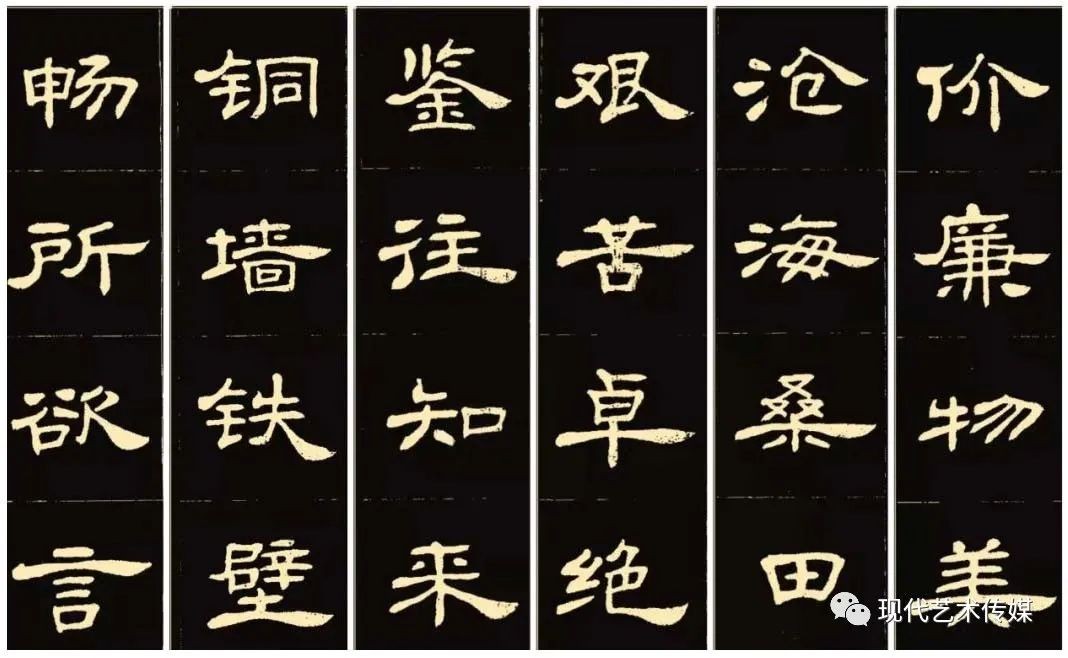 价廉物美
沧海桑田
艰苦卓绝
鉴往知来
铜墙铁壁
畅所欲言
现代艺术传媒